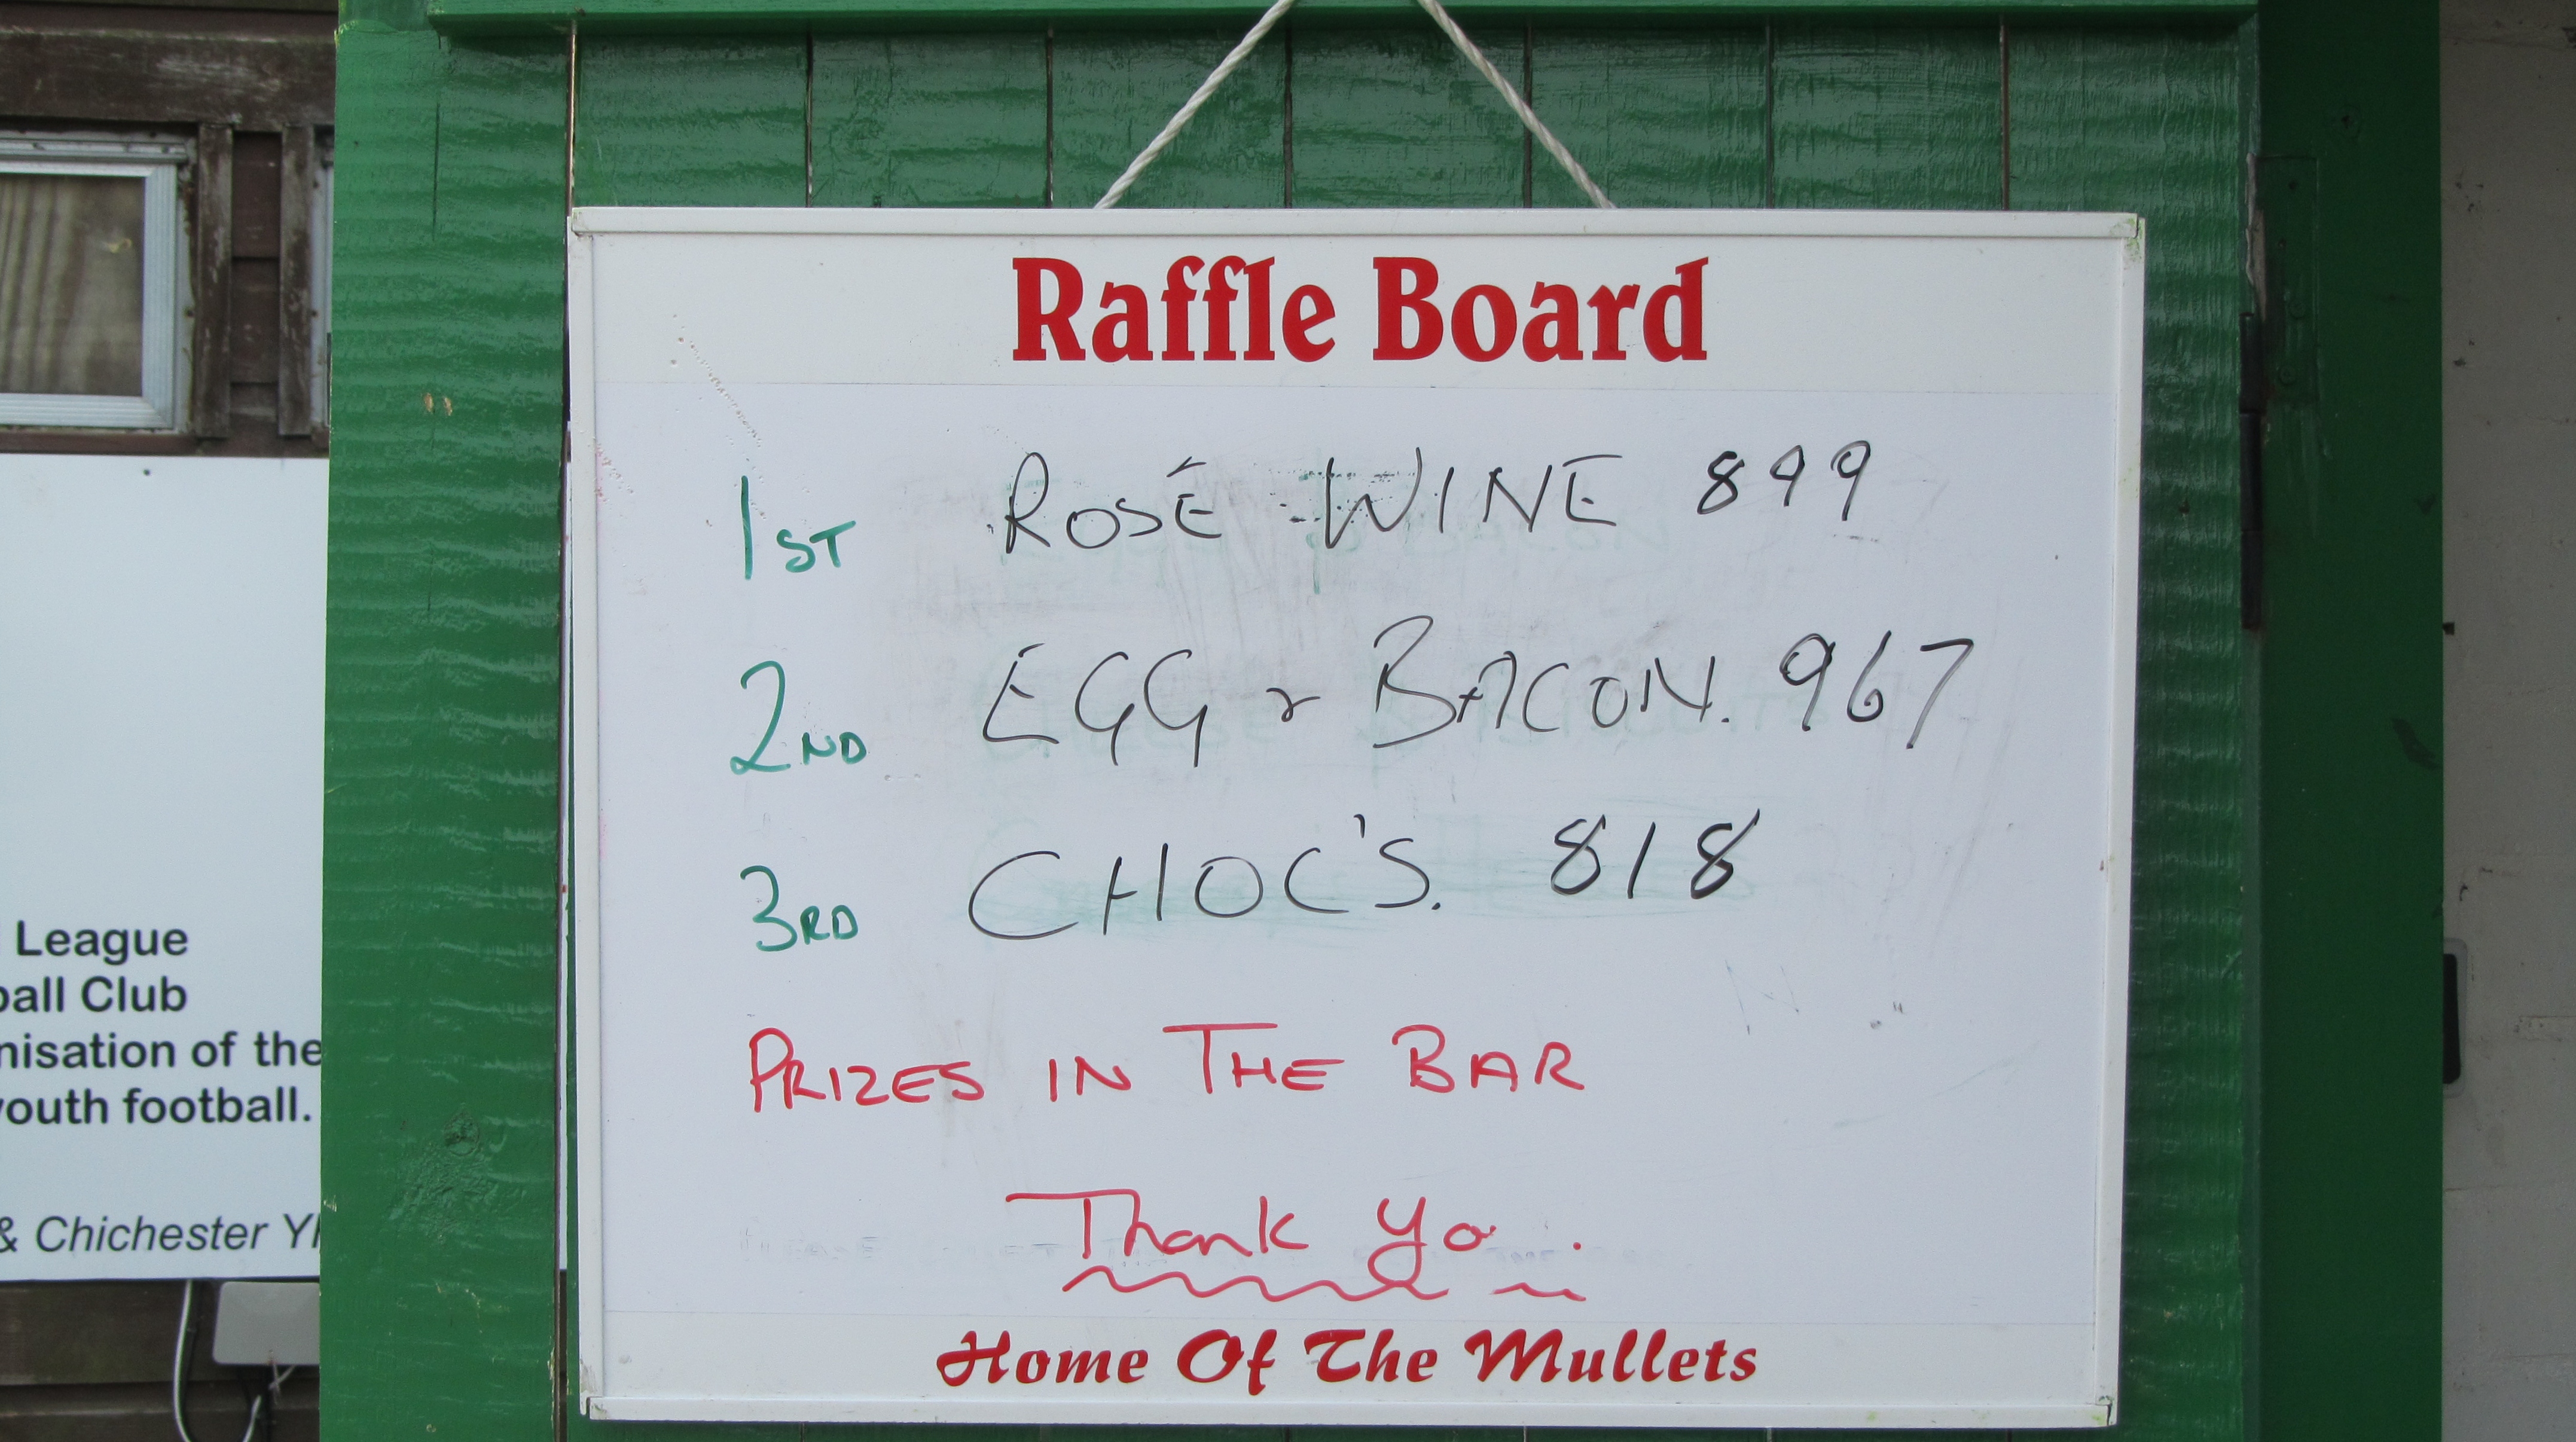 Raffle Board
1ST ROSÉ WINE 899
2ND EGG & BACON. 967
3RD CHOC'S. 818
PRIZES IN THE BAR
Thank Yo .
Home Of The Mullets
League
ball Club
nisation of the
youth football.
& Chichester